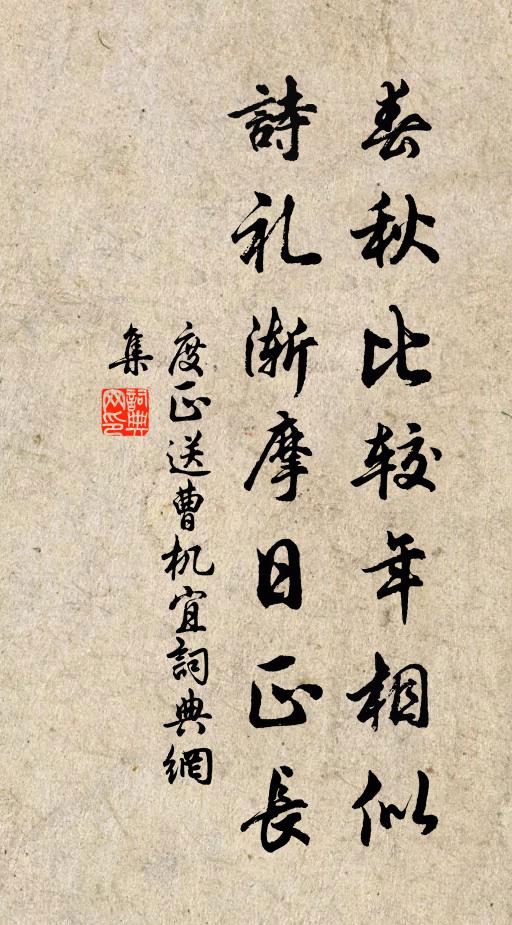 春秋比较年相似
詩礼渐摩日正長
度正送曹机宜詞典網
集
詞典網印